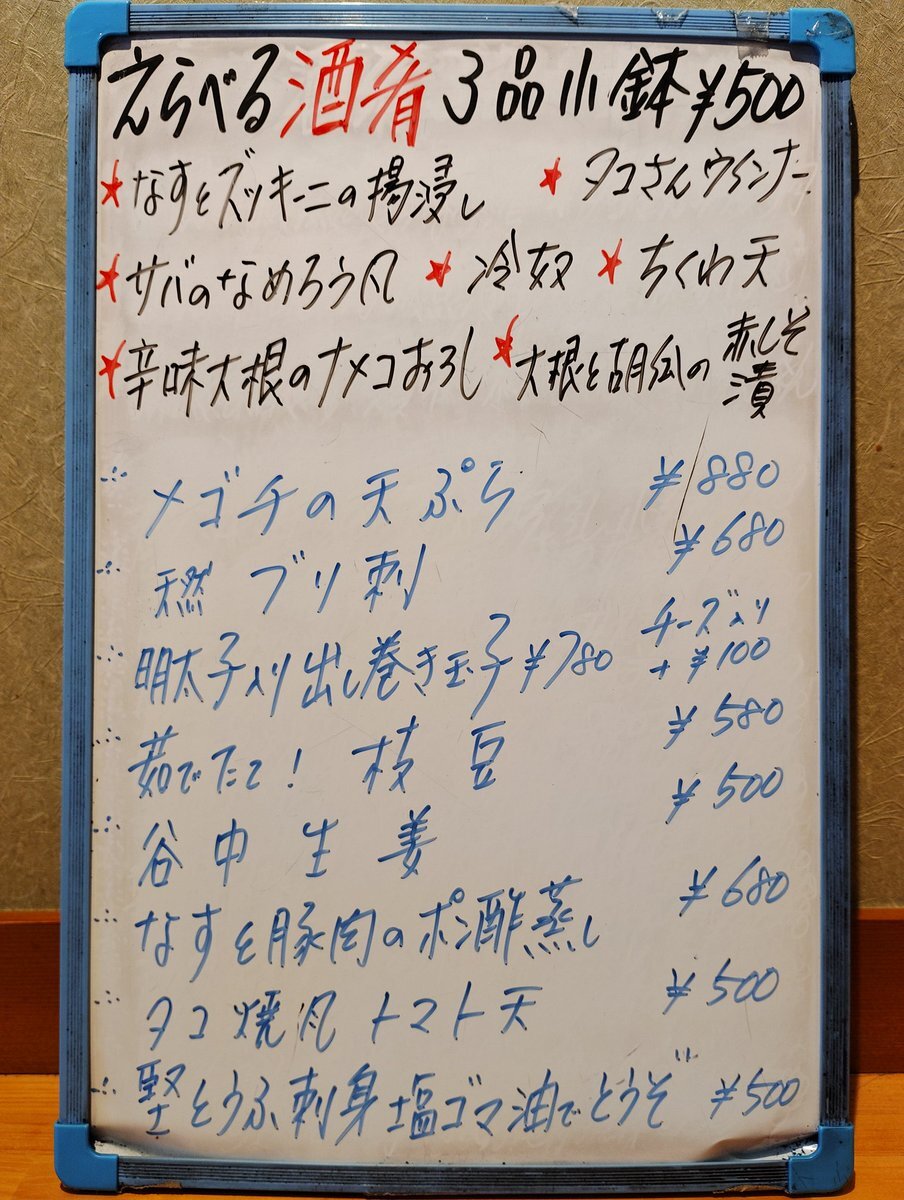 えらべる酒肴3品小鉢¥500
★なすとズッキーニの揚浸し ★タコさんウインナー
★サバのなめろう風 ★冷奴 ★ちくわ天
★辛味大根のナメコおろし ★大根と胡瓜の赤しそ漬
∴メゴチの天ぷら ¥880
∴天然 ブリ刺 ¥680
∴明太子入り出し巻き玉子¥780 チーズ入り+¥100
∴茹でたて！ 枝豆 ¥580
∴谷中生姜 ¥500
∴なすと豚肉のポン酢蒸し ¥680
∴タコ焼風トマト天 ¥500
∴堅とうふ刺身塩ゴマ油でどうぞ ¥500